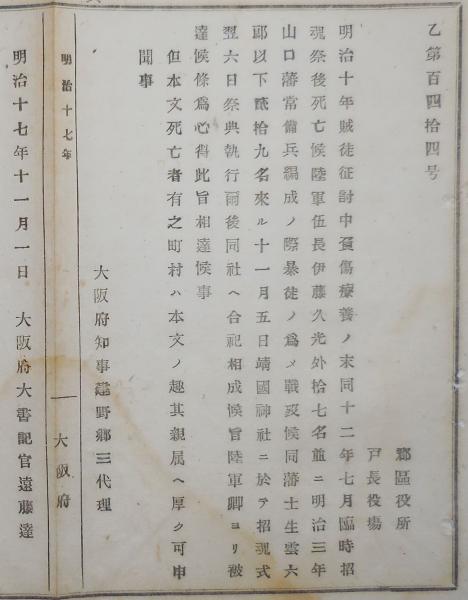 乙第百四拾四号
郡區役所
戸長役塲
明治十年賊徒征討中負傷療養ノ末同十二年七月臨時招
魂祭後死亡候陸軍伍長伊藤久光外拾七名並ニ明治三年
山口藩常備兵編成ノ際暴徒ノ爲メ戰歿候同藩士生雲六
郎以下貳拾九名來ル十一月五日靖國神社ニ於テ招魂式
翌六日祭典執行爾後同社ヘ合祀相成候旨陸軍卿ヨリ被
達候條爲心得此旨相達候事
但本文死亡者有之町村ハ本文ノ趣其親属ヘ厚ク可申
聞事
大阪府知事建野郷三代理
明治十七年
大阪府
明治十七年十一月一日 大阪府大書記官遠藤達